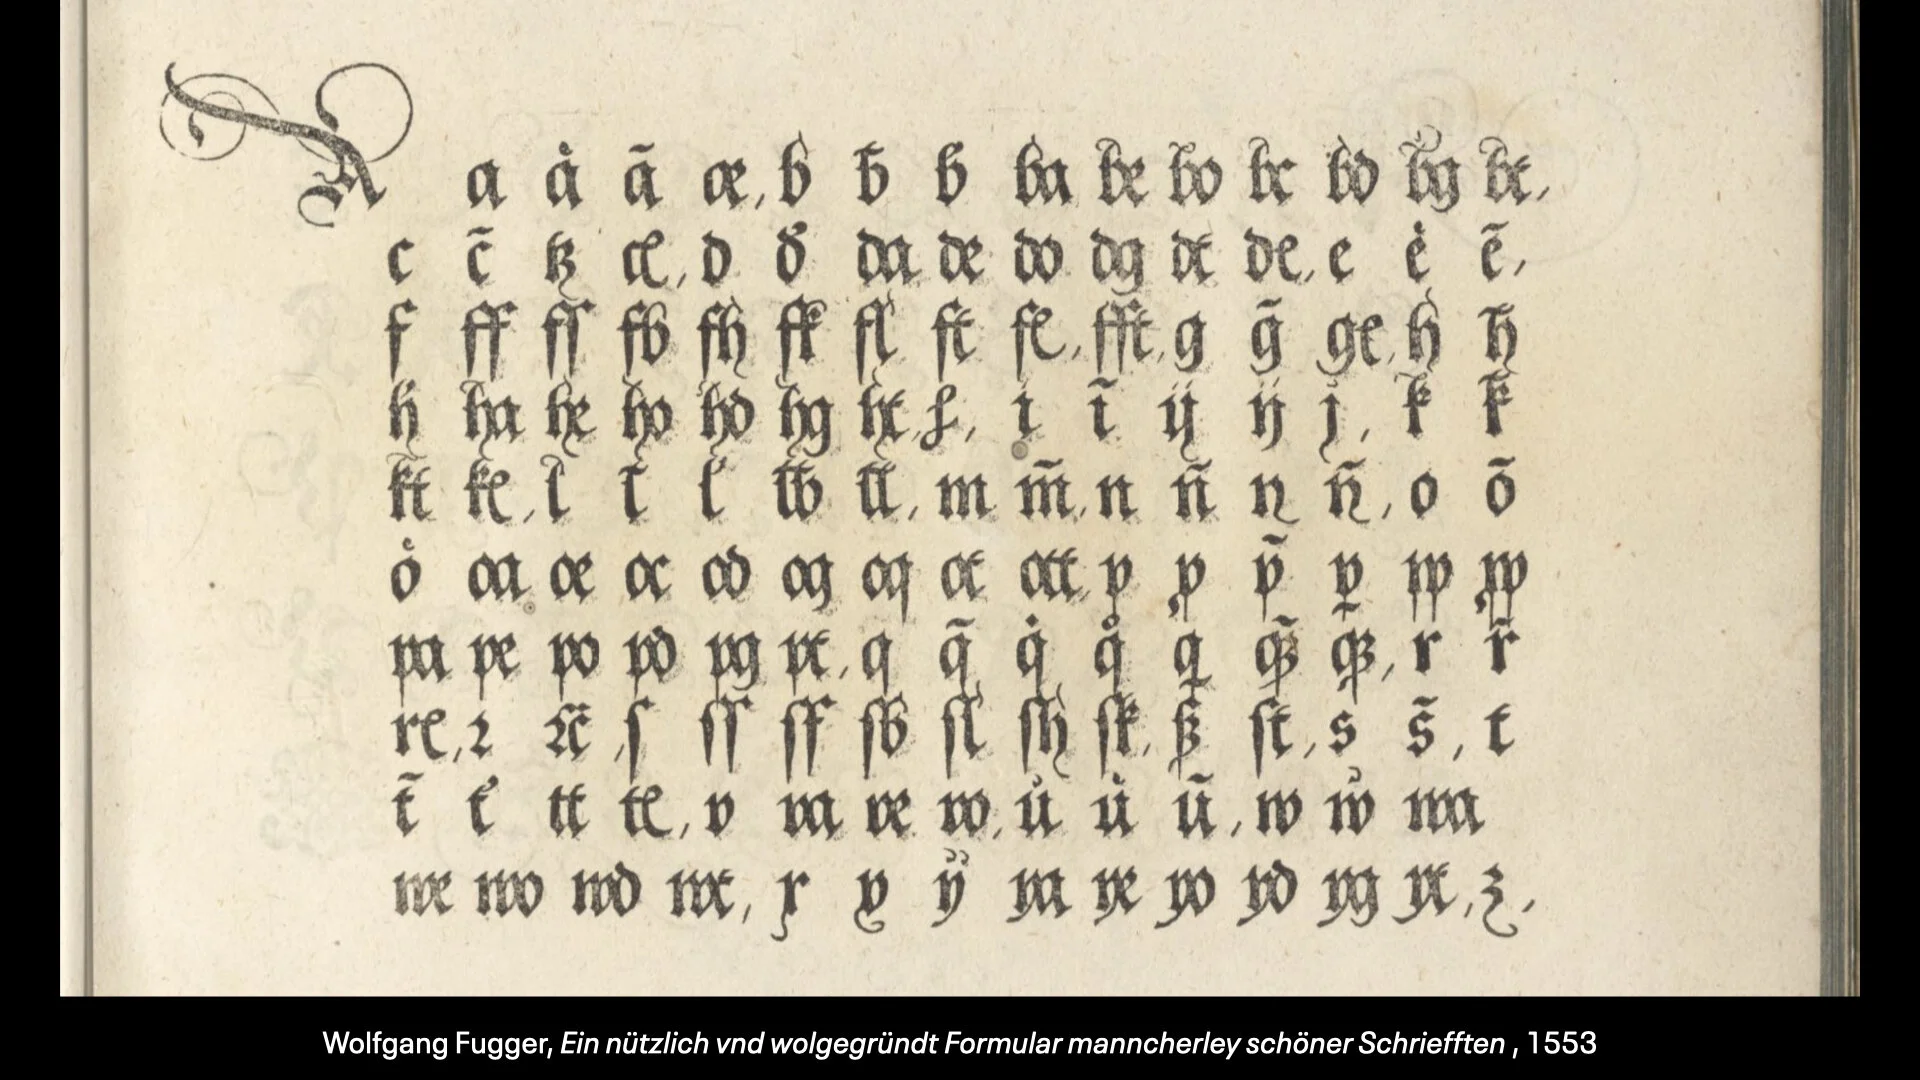 A a å ã æ, b b̃ b ba be bo bc bd bg bt,
c c̃ tz cl, d d da de do dg dt de, e ė ẽ,
f ff fſ fb fh fk fl ft fe, fft, g g̃ ge, h h̃
h ha he ho hd hg ht, i ĩ ij ij j, k k
kt ke, l l̃ l lb ll, m m̃, n ñ n ñ, o õ
o̊ oa oe oc od og oq ot ott p p p̃ p pp pp
pa pe po pd pg pt, q q̃ q̇ q̊ q r r̃
re, ꝛ ſ ſſ ſf ſb ſl ſh ſk, ß ſt, s s̃, t
t̃ t tt te, v va ve vo, ů u̇ ũ, w ẘ wa
we wo wd wt, x y ÿ ya ye yo yd yg yt, z,
Wolfgang Fugger, Ein nützlich vnd wolgegründt Formular manncherley schöner Schriefften , 1553